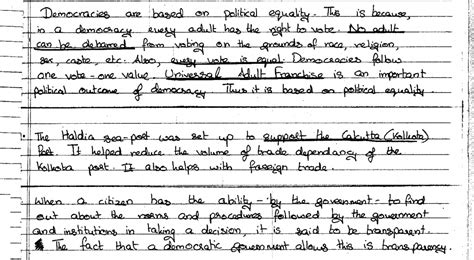 Democracies are based on political equality. This is because,
in a democracy every adult has the right to vote. No adult
can be debarred from voting on the grounds of race, religion,
sex, caste, etc. Also, every vote is equal. Democracies follow
one vote - one value. Universal Adult Franchise is an important
political outcome of democracy. Thus it is based on political equality
• The Haldia sea-port was set up to support the Calcutta (Kolkata)
Port. It helped reduce the volume of trade dependancy of the
Kolkata port. It also helps with foreign trade.
When a citizen has the ability - by the government - to find
out about the norms and procedures followed by the government
and institutions in taking a decision, it is said to be transparent.
The fact that a democratic government allows this is transparency.